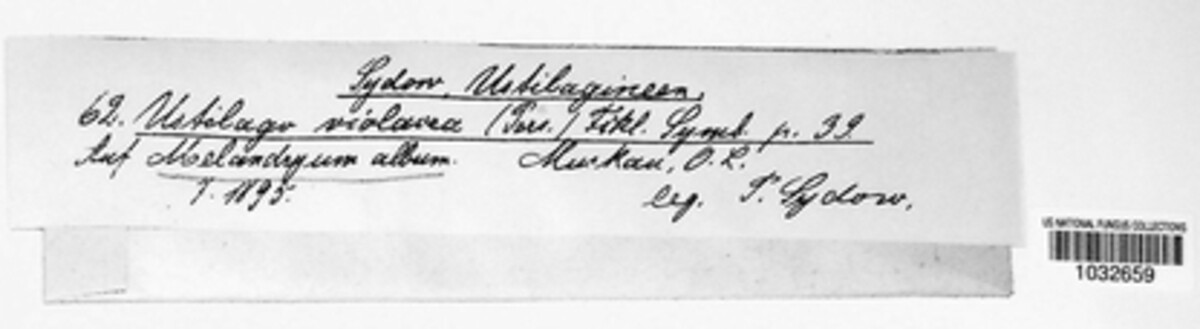 Sydow, Ustilagineen.
62. Ustilago violacea (Pers.) Fckl. Symb. p. 39
Auf Melandryum album. Muskau, O. L.
7. 1895. leg. P. Sydow.
US NATIONAL FUNGUS COLLECTIONS
1032659